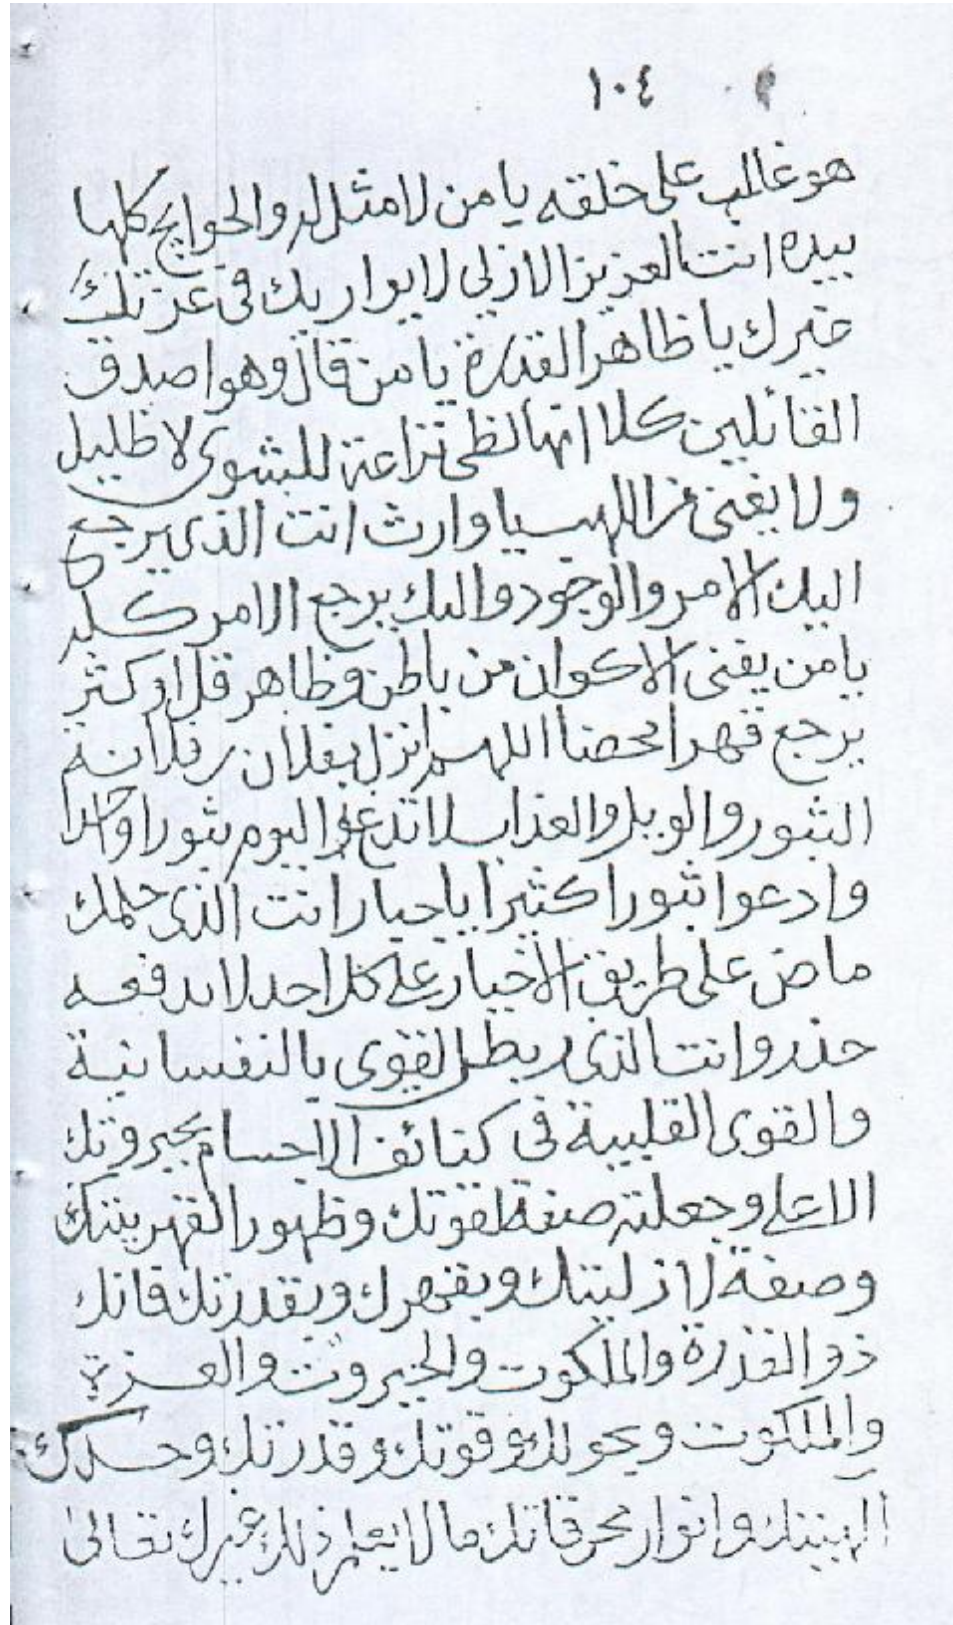 ١٠٤
هو غالب على خلقه يا من لا مثل له والحوايج كلها
بيده انت العزيز الازلي لا يوازيك في عزتك
غيرك يا ظاهر القدرة يا من قال وهو اصدق
القائلين كلا انها لظى نزاعة للشوى لا ظليل
ولا يغنى من اللهب يا وارث انت الذى يرجع
اليك الامر والوجود واليك يرجع الامر كله
يا من يفنى الاكوان من باطن وظاهر قل او كثر
يرجع قهرا محضا اللهم انزل بفلان بن فلانة
الثبور والويل والعذاب لا تدعوا اليوم ثبورا واحدا
وادعوا ثبورا كثيرا يا جبار انت الذى حكمك
ماض على طريق الاجبار على كل احد لا يدفعه
حذر وانت الذى ربط القوى بالنفسانية
والقوى القلبية فى كثائف الاجسام بجبروتك
الاعلى وجعلته صفة لقوتك وظهورا لقهريتك
وصفة لازليتك وبقهرك وبقدرتك فانك
ذو القدرة والملكوت والجبروت والعزة
والملكوت وبحولك وقوتك وقدرتك و
الهيتك وانوار محرقاتك ما لا يعلم ذلك غيرك تعالى